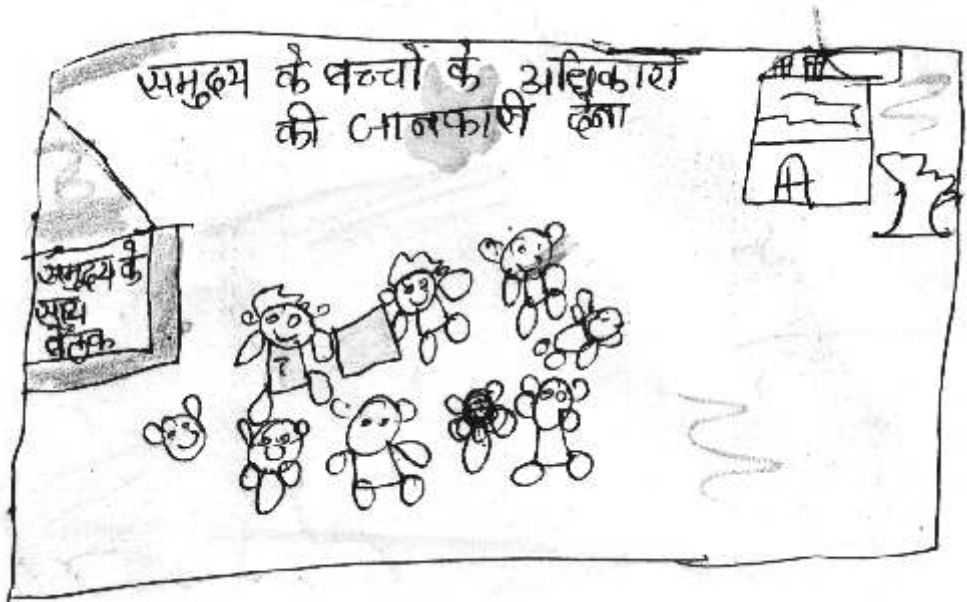 समुदय के बच्चो के अधिकारो
की जानकारी देना
समुदय के
साथ
बैठक